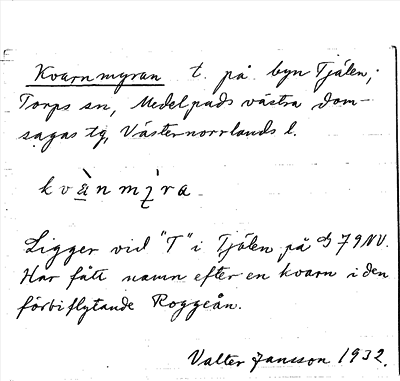 Kvarnmyran t. på byn Tjälen;
Torps sn, Medelpads västra dom-
sagas tg, Västernorrlands l.
kvä̀nmỳ̨ra
Ligger vid "T" i Tjälen på 79 NV.
Har fått namn efter en kvarn i den
förbiflytande Roggeån.
Valter Jansson 1932.